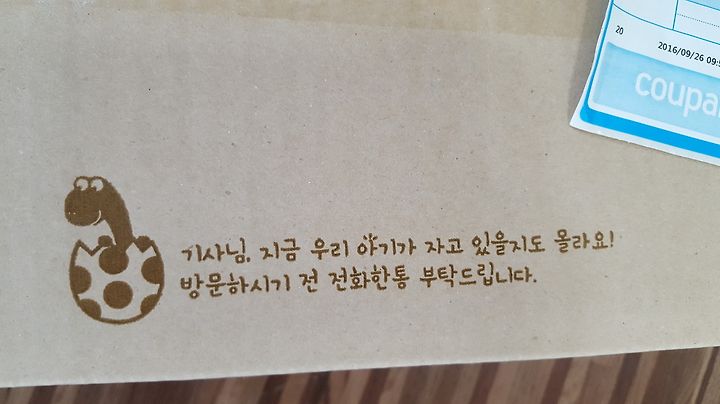 20
2016/09/26 09:5
coupa
기사님, 지금 우리 아기가 자고 있을지도 몰라요!
방문하시기 전 전화한통 부탁드립니다.